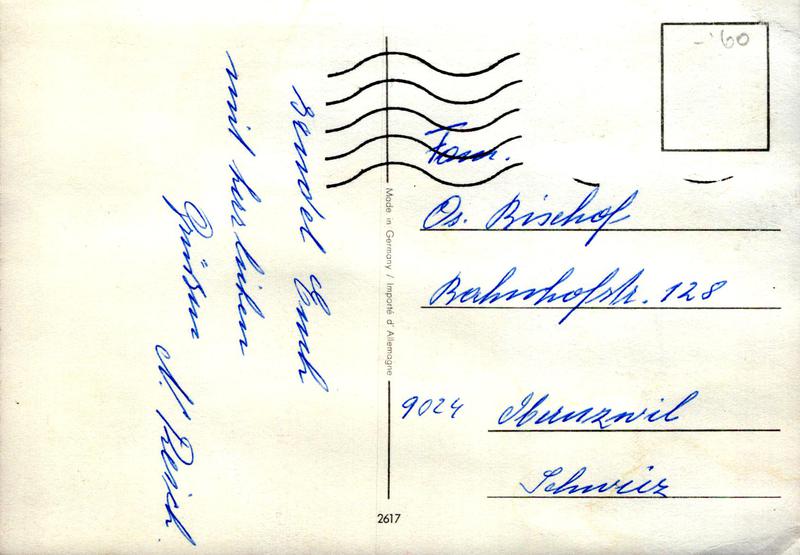 sendet Euch
mit herzlichen
Grüßen
N.
-'60
Fam.
Os. Bischof
Bahnhofstr. 128
9024
Schweiz
Made in Germany / Importé d'Allemagne
2617